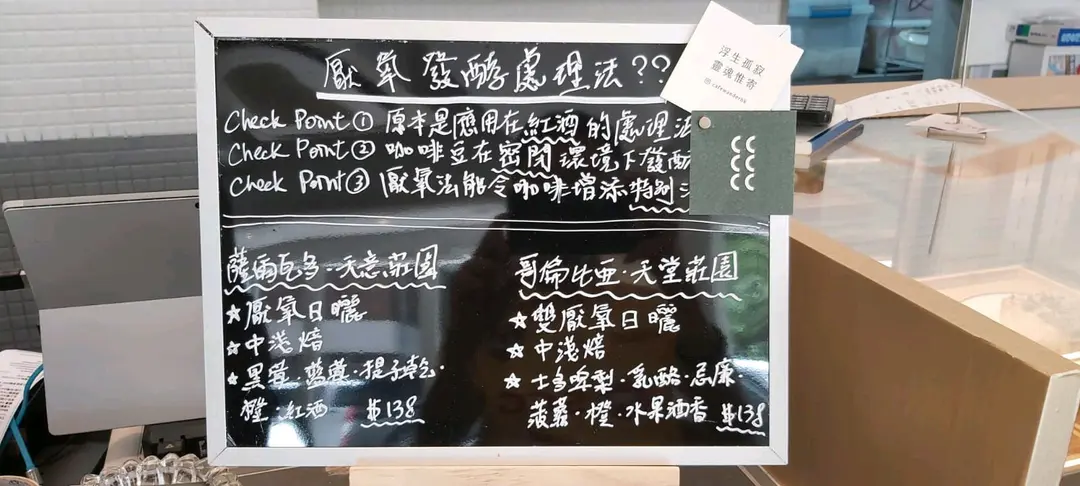 厭氧發酵處理法??
浮生孤寂
靈魂惟寄
Check Point① 原本是應用在紅酒的處理法
Check Point② 咖啡豆在密閉環境下發酵
Check Point③ 厭氧法能令咖啡增添特別
薩爾瓦多·天意莊園
☆厭氧日曬
☆中淺焙
☆黑莓·藍莓·提子乾·
橙·紅酒 $138
哥倫比亞·天堂莊園
☆雙厭氧日曬
☆中淺焙
☆士多啤梨·乳酪·忌廉·
菠蘿·橙·水果酒香 $138